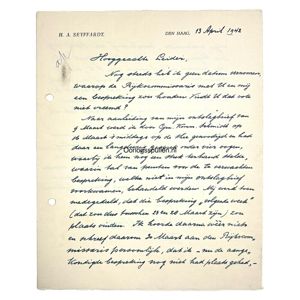 H. A. SEYFFARDT.
DEN HAAG, 13 April 1942
Hooggeachte Leider,
Nog steeds heb ik geen datum vernomen,
waarop de Rijkscommissaris met U en mij
een bespreking zou houden. Vindt U dat ook
niet vreemd?
Naar aanleiding van mijn
Maart werd ik door Gen. Komm. Schmidt op
Maart 's middags op de thee genoodigd en had
daar een langdurig gesprek onder vier oogen,
waarbij ik hem nog een stuk ter hand stelde,
waarin tal van punten voor de te verwachten
bespreking, welke niet in mijn
voorkwamen, behandeld werden. Mij werd toen
medegedeeld, dat die bespreking „volgende week"
(dat zou dus tusschen 23 en 30 Maart zijn) zou
plaats vinden. Ik hoorde daarna weer niets
en schreef daarom Maart aan den Rijkscom-
missaris persoonlijk, dat ik - nu de aange-
kondigde bespreking nog niet had plaats gehad, -
Oorlogsspullen.nl